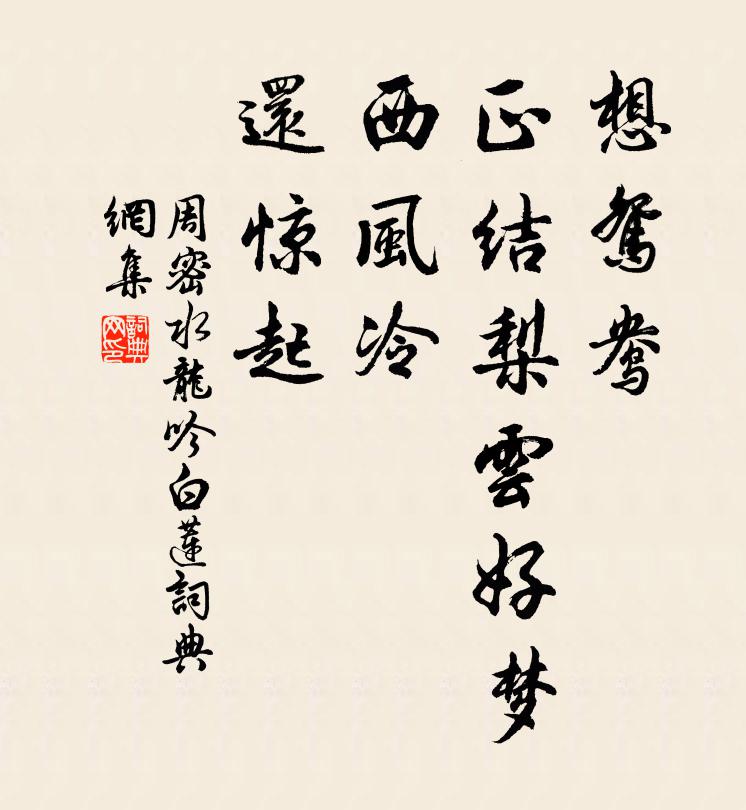 想鴛鴦
正结梨雲好梦
西風冷
還惊起
周密水龍吟白蓮詞典
網集
詞典
网印